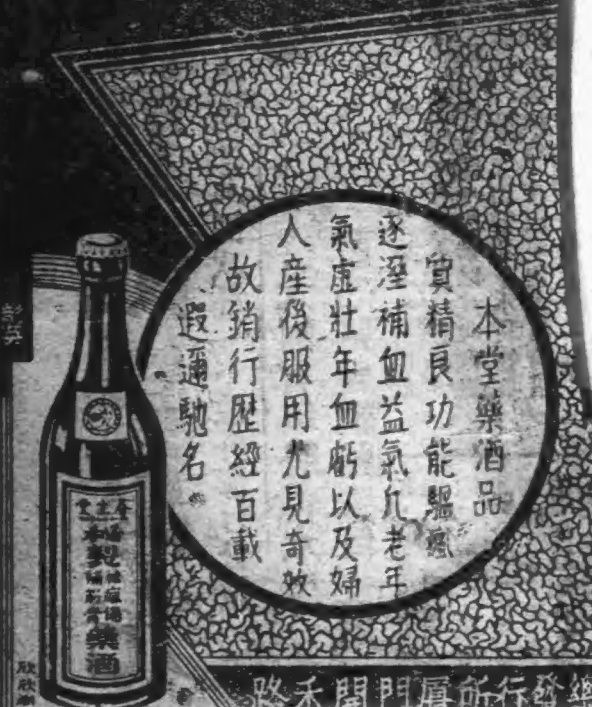 本堂藥酒品
質精良功能驅瘋
逐溼補血益氣凡老年
氣虛壯年血虧以及婦
人產後服用尤見奇效
故銷行歷經百載
遐邇馳名。
本製
藥酒
路禾開門廈所行發